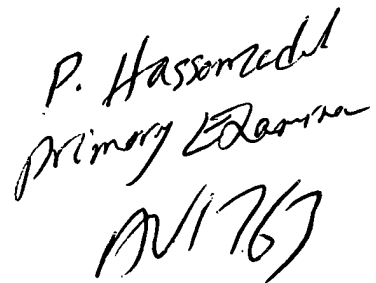 P. Hassanzadeh
Primary Examiner
AU 1763